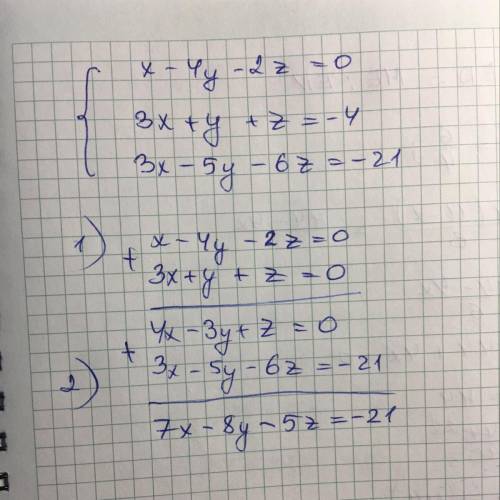 x - 4y - 2z = 0
3x + y + z = -4
3x - 5y - 6z = -21
1) + x - 4y - 2z = 0
3x + y + z = 0
4x - 3y + z = 0
2) + 3x - 5y - 6z = -21
7x - 8y - 5z = -21